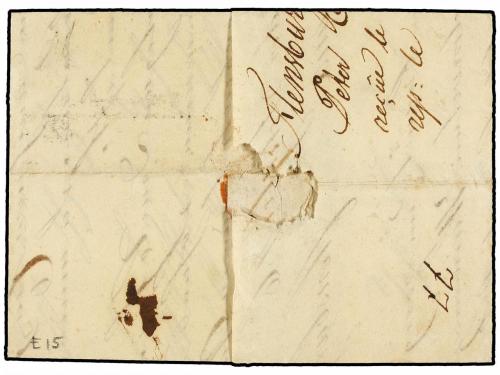 Flensbur
Peter
reçûe le
rep: le
77
E15